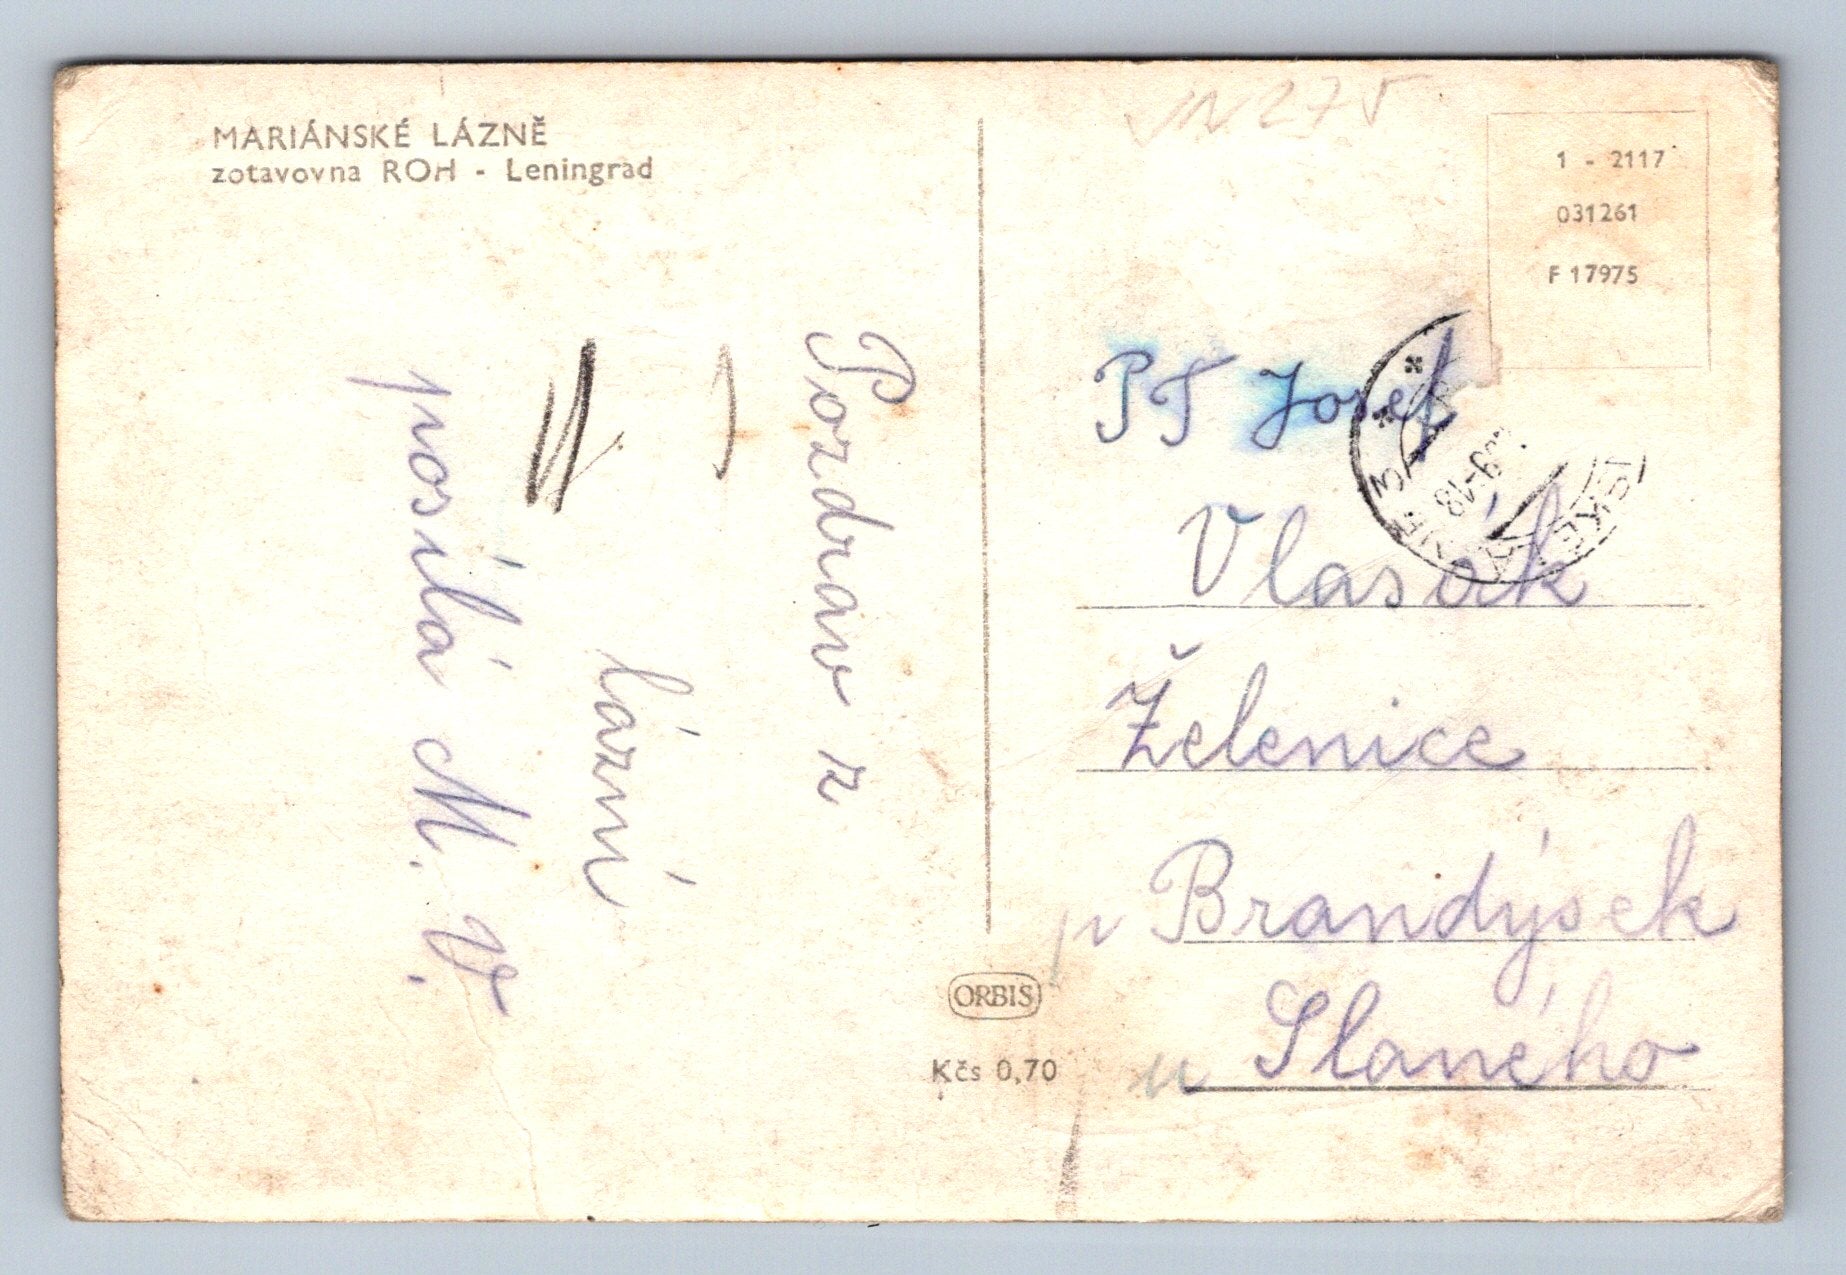 MARIÁNSKÉ LÁZNĚ
zotavovna ROH - Leningrad
Pozdrav z
lázní
posílá M. V.
275
1 - 2117
031261
F 17975
PT Josef
Vlasák
Želenice
p Brandýsek
u Slaného
ORBIS
Kčs 0,70